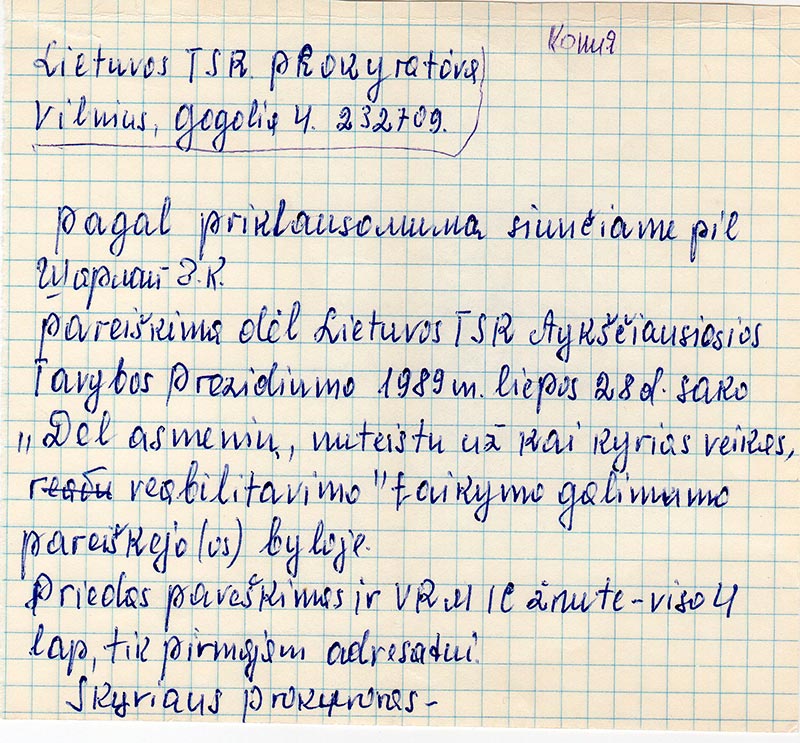 Копия
Lietuvos TSR. prokyratūra
Vilnius, gogolia 4. 232709.
pagal priklausomuma siunčiame pil
Шармат З.К.
pareiškima dėl Lietuvos TSR Aykščiausiosios
Tavybos Prezidiumo 1989m. liepos 28d. sako
„Dėl asmenių, nuteistu už kai kyrias veikas,
reabilitavimo" taikymo galimumo
pareiškejo (os) byloje.
Priedas pareškimas ir VRM IC žnute-viso 4
lap, tik pirmajam adresatui.
Skyriaus prokyroras-